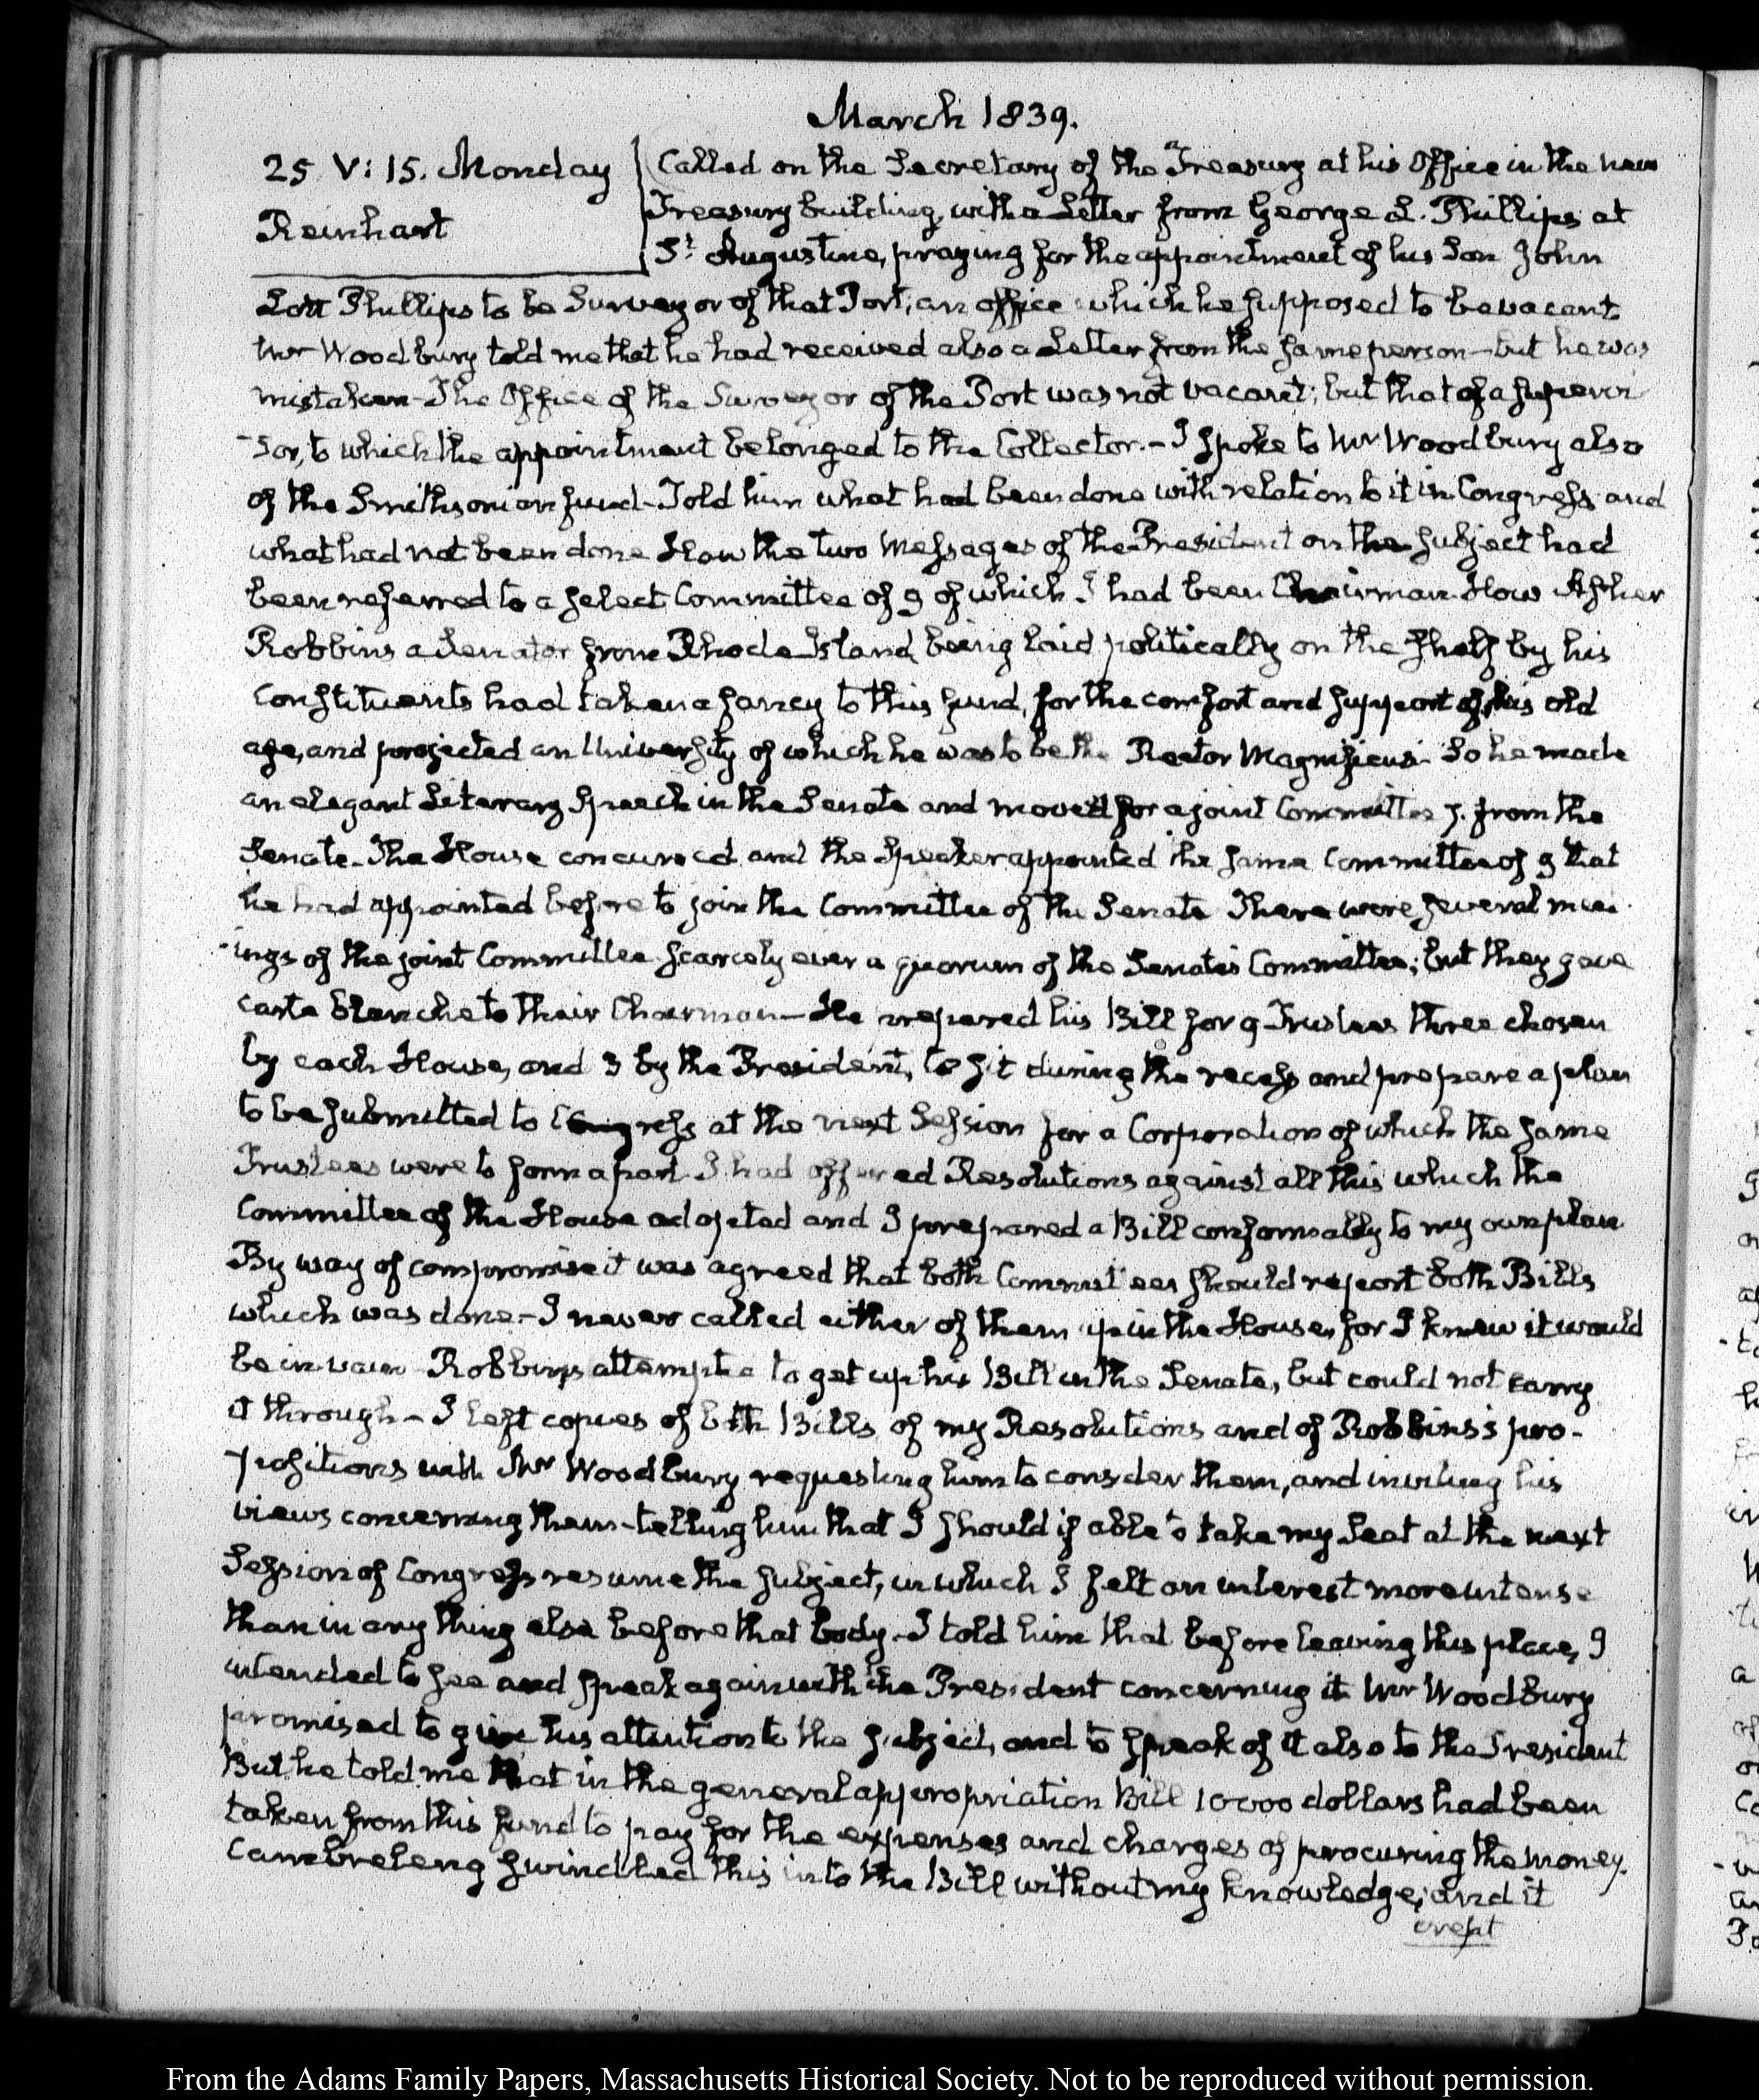 March 1839.
25. V: 15. Monday
Reinhart
Called on the Secretary of the Treasury at his Office in the new
Treasury building, with a Letter from George L. Phillips at
St. Augustine, praying for the appointment of his Son John
Lott Phillips to be Surveyor of that Port; an office which he supposed to be vacant
Mr Woodbury told me that he had received also a Letter from the same person—but he was
mistaken—The Office of the Surveyor of the Port was not vacant; but that of a supervi
-sor, to which the appointment belonged to the Collector.—I spoke to Mr Woodbury also
of the Smithsonian fund—Told him what had been done with relation to it in Congress and
what had not been done How the two Messages of the President on the subject had
been referred to a select Committee of 9 of which I had been Chairman. How Asher
Robbins a Senator from Rhode Island, being laid politically on the shelf by his
Constituents had taken a fancy to this fund, for the comfort and support of his old
age, and projected an University of which he was to be the Rector Magnificus. So he made
an elegant Literary Speech in the Senate and moved for a joint Committee 7. from the
Senate—The House concurred and the Speaker appointed the same Committee of 9 that
he had appointed before to join the Committee of the Senate There were several mee
-ings of the joint Committee scarcely ever a quorum of the Senate's Committee; but they gave
carte blanche to their Chairman—He prepared his Bill for 9 Trustees three chosen
by each House, and 3 by the President, to sit during the recess and prepare a plan
to be submitted to Congress at the next Session for a Corporation of which the same
Trustees were to form a part I had offered Resolutions against all this which the
Committee of the House adopted and I prepared a Bill conformably to my own plan
By way of compromise it was agreed that both Committees should report both Bills
which was done—I never called either of them up in the House, for I knew it would
be in vain Robbins attempted to get up his Bill in the Senate, but could not carry
it through—I left copies of both Bills, of my Resolutions and of Robbins's pro-
-positions with Mr Woodbury requesting him to consider them, and inviting his
views concerning them—telling him that I should if able to take my Seat at the next
Session of Congress resume the subject, in which I felt an interest more intense
than in any thing else before that body—I told him that before leaving this place, I
intended to see and speak again with the President concerning it Mr Woodbury
promised to give his attention to the subject, and to speak of it also to the President
But he told me that in the general appropriation Bill 10000 dollars had been
taken from this fund to pay for the expenses and charges of procuring the money.
Cambreleng swindled this into the Bill without my knowledge; and it
crept
From the Adams Family Papers, Massachusetts Historical Society. Not to be reproduced without permission.